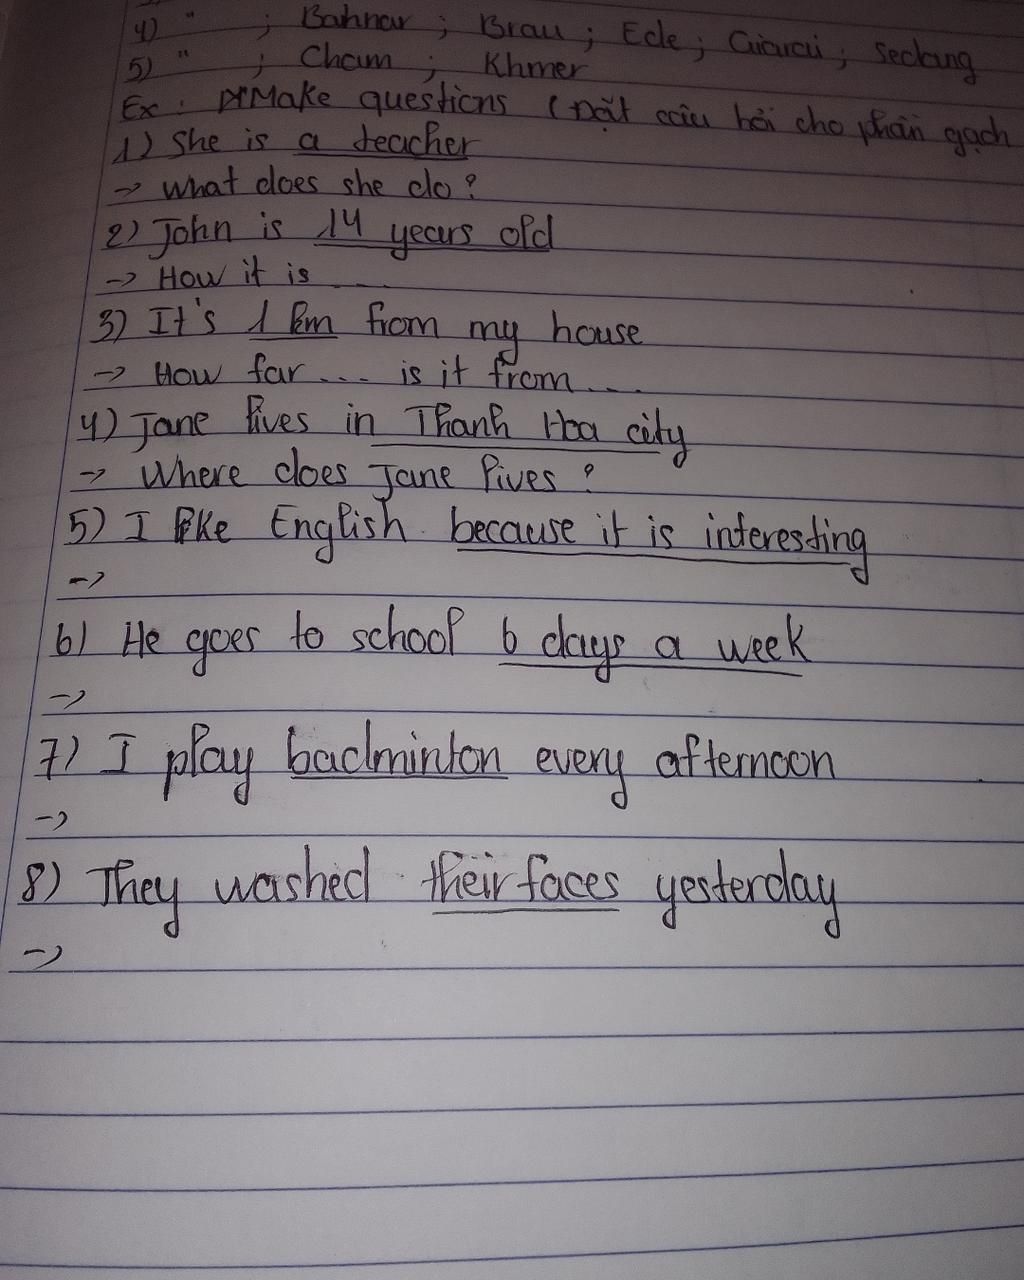 4) " ; Bahnar ; Brau ; Ede ; Giarai ; Sedang
5) " ; Cham ; Khmer
Ex : Make questions ( Đặt câu hỏi cho phần gạch
1) She is a teacher
-> What does she do ?
2) John is 14 years old
-> How it is ....
3) It's 1 km from my house
-> How far .... is it from ....
4) Jane lives in Thanh Hoa city
-> Where does Jane lives ?
5) I like English because it is interesting
->
6) He goes to school 6 days a week
->
7) I play badminton every afternoon
->
8) They washed their faces yesterday
->